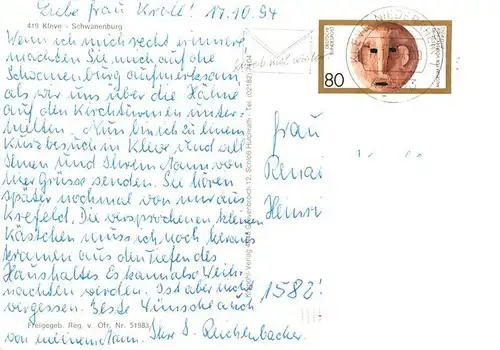 Liebe Frau Kroll! 17.10.94
419 Kleve - Schwanenburg
Wenn ich mich recht erinnere
machten Sie mich auf die
Schwanenburg aufmerksam,
als wir uns über die Hähne
auf den Kirchtürmen unter-
hielten. Nun bin ich zu einem
Kurzbesuch in Kleve und will
Ihnen und Ihrem Mann von
hier Grüsse senden. Sie hören
später nochmal von mir aus
Krefeld. Die versprochenen kleinen
Kästchen muss ich noch heraus
kramen aus den Tiefen des
Haushaltes. Es kann also Weih-
nachten werden. Ist aber nicht
vergessen. Beste Wünsche auch
von meinem Mann. Ihre S. Reichenbacher
Freigegeb. Reg. v. Dfr. Nr. 51983
Schloß Hülchrath - Tel. (02182)
80
Frau
Renai
Heinri
1582